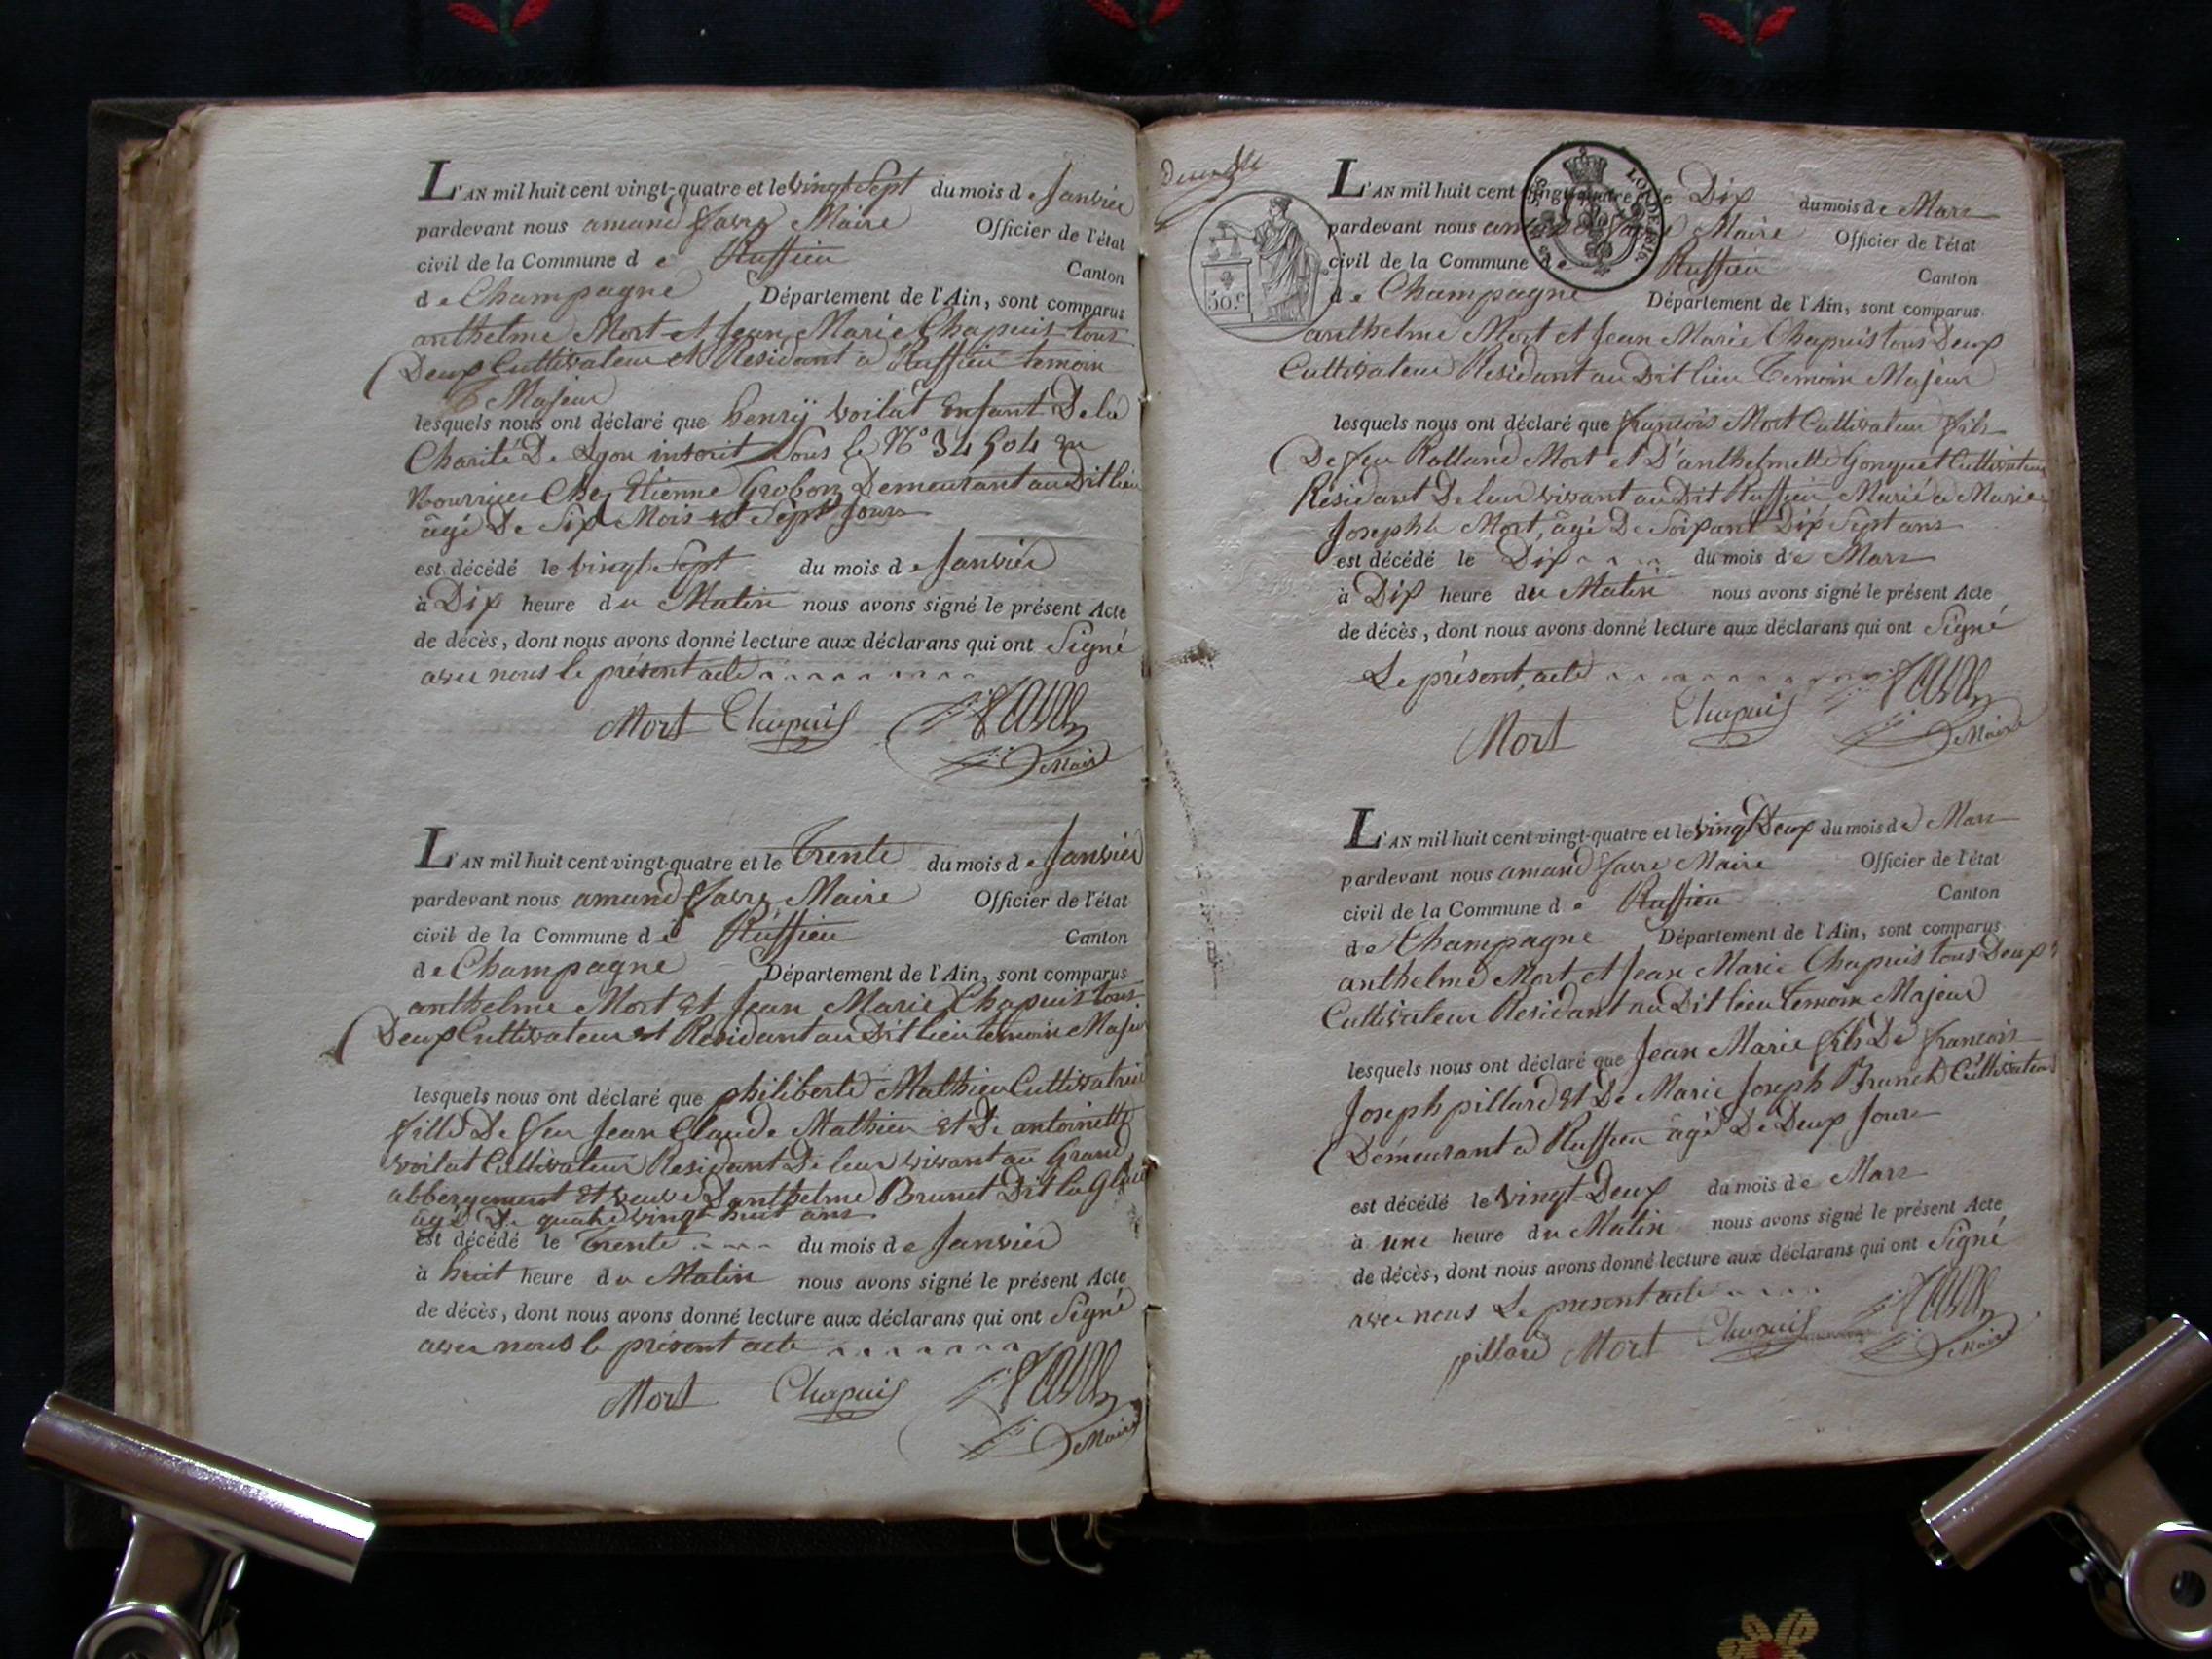 L'AN mil huit cent vingt-quatre et le vingt Sept du mois de Janvier
pardevant nous amand favre Maire Officier de l'état
civil de la Commune de Ruffieu Canton
de Champagne Département de l'Ain, sont comparus
anthelme Mort et Jean Marie Chapuis tous
Deux Cultivateur et Residant a Ruffieu temoin
Majeur
lesquels nous ont déclaré que henrÿ voilat Enfant De la
Charité De Lyon inscrit Sous le N° 34504 en
Nourrice Chez Etienne Grobon Demeurant au Dit lieu
âgé De Six Mois et Sept Jours
est décédé le vingt Sept du mois de Janvier
à Dix heure du Matin nous avons signé le présent Acte
de décès, dont nous avons donné lecture aux déclarans qui ont Signé
avec nous le présent acte
Mort Chapuis favre
Maire
L'AN mil huit cent vingt-quatre et le Trente du mois de Janvier
pardevant nous amand favre Maire Officier de l'état
civil de la Commune de Ruffieu Canton
de Champagne Département de l'Ain, sont comparus
anthelme Mort et Jean Marie Chapuis tous
Deux Cultivateur et Residant au Dit lieu temoin Majeur
lesquels nous ont déclaré que philiberte Mathieu Cultivatrice
fille De feu Jean Claude Mathieu et De antoinette
voilat Cultivateur Residant De leur vivant au Grand
abbergement et veuve D'anthelme Brunet Dit la
âgé De quatre vingt huit ans
est décédé le Trente du mois de Janvier
à huit heure du Matin nous avons signé le présent Acte
de décès, dont nous avons donné lecture aux déclarans qui ont Signé
avec nous le présent acte
Mort Chapuis favre
Maire
50 c
L'AN mil huit cent vingt-quatre et le Dix du mois de Mars
pardevant nous amand favre Maire Officier de l'état
civil de la Commune de Ruffieu Canton
de Champagne Département de l'Ain, sont comparus
anthelme Mort et Jean Marie Chapuis tous Deux
Cultivateur Residant au Dit lieu Temoin Majeur
lesquels nous ont déclaré que françois Mort Cultivateur fils
De feu Rolland Mort et D'anthelmette Gonguet Cultivateur
Résidant De leur vivant au Dit Ruffieu Marié a Marie
Josephte Mort, âgé De Soixant Dix Sept ans
est décédé le Dix du mois de Mars
à Dix heure du Matin nous avons signé le présent Acte
de décès, dont nous avons donné lecture aux déclarans qui ont Signé
Le présent acte
Mort Chapuis favre
Maire
L'AN mil huit cent vingt-quatre et le vingt Deux du mois de Mars
pardevant nous amand favre Maire Officier de l'état
civil de la Commune de Ruffieu Canton
de Champagne Département de l'Ain, sont comparus
anthelme Mort et Jean Marie Chapuis tous Deux
Cultivateur Residant au Dit lieu temoin Majeur
lesquels nous ont déclaré que Jean Marie fils De francois
Joseph pillard et De Marie Joseph Brunet Cultivateur
Demeurant a Ruffieu âgé De Deux Jours
est décédé le vingt-Deux du mois de Mars
à une heure du Matin nous avons signé le présent Acte
de décès, dont nous avons donné lecture aux déclarans qui ont Signé
avec nous Le present acte
pillard Mort Chapuis favre
Maire